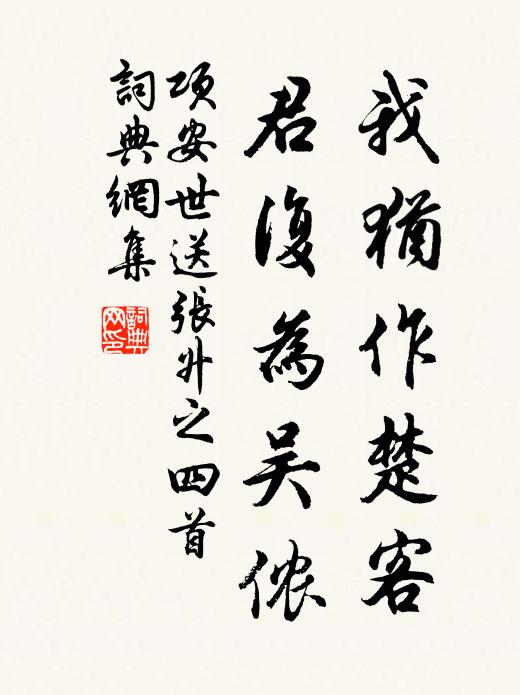 我猶作楚客
君復為吴侬
項安世送張升之四首
詞典網集
詞典网印